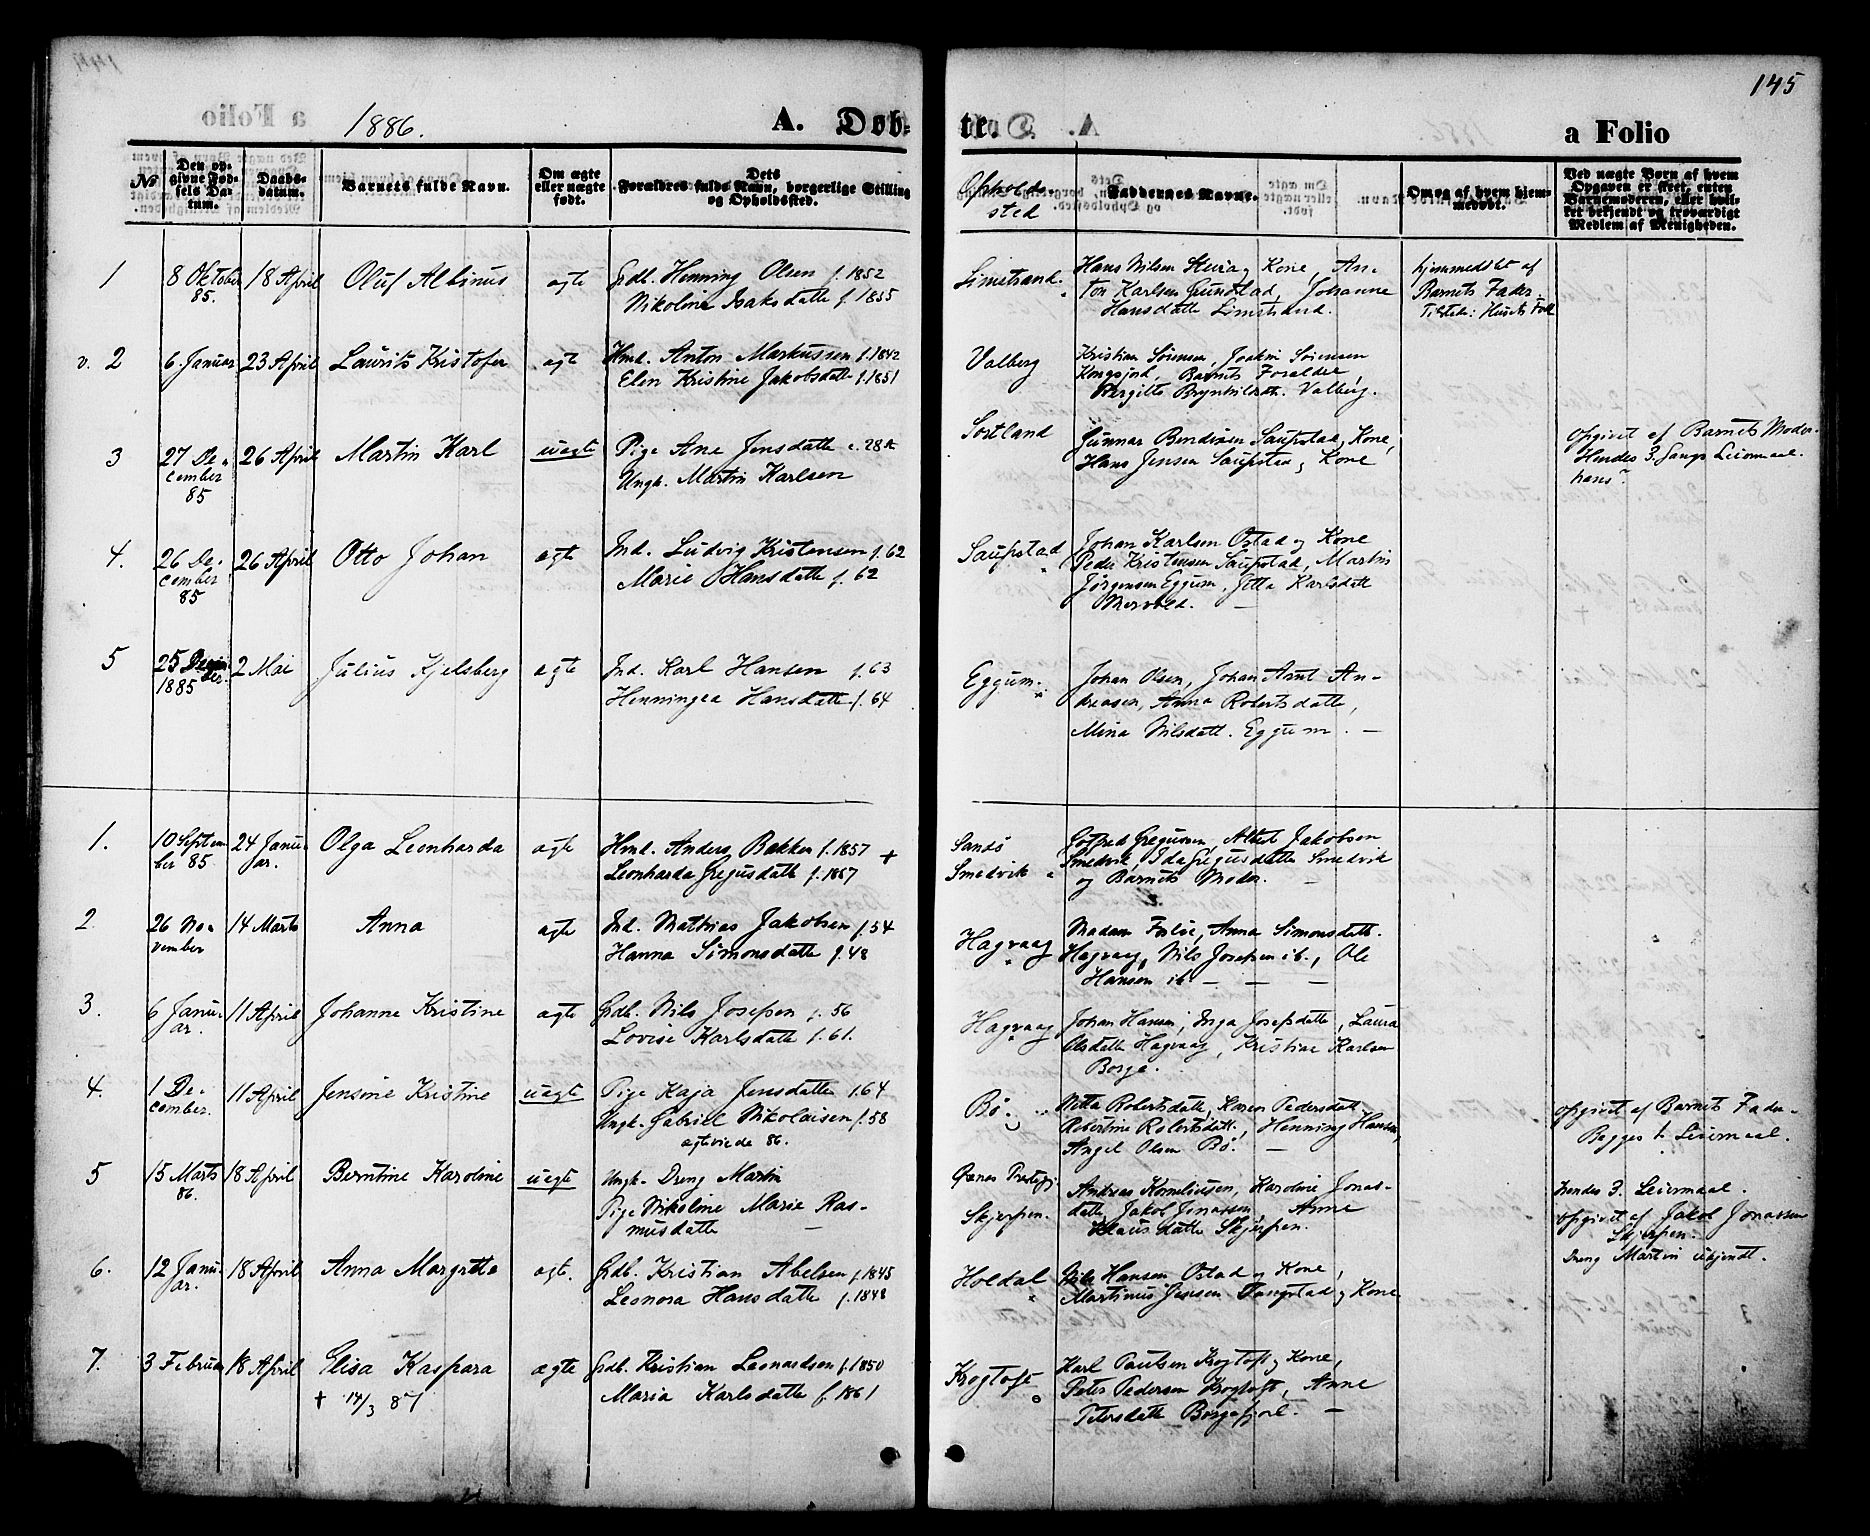 145
1886.
A. Døbte.
a Folio
No
Den opgivne Fødsels Datum.
Daabsdatum.
Barnets fulde Navn.
Om ægte eller uægte født.
Dets Forældres fulde Navn, borgerlige Stilling og Opholdssted.
Opholdssted
Faddernes Navne.
Om og af hvem hjemmedøbt.
Ved uægte Børn af hvem Opgaven er skeet, enten Barnemoderen, eller hvilket bekjendt og troværdigt Medlem af Menigheden.
1
8 Oktober 85.
18 April
Oluf Albinus
ægte
Gdb. Henning Olsen f. 1852
Nikoline Isaksdatter f. 1855
Limstrand
Hans Nilsen Steira og Kone, An-
ton Karlsen Gundstad, Johanne
Hansdatte Limstrand.
hjemmedøbt af
Barnets Fader.
Tilstede: Husets Folk
v. 2
6. Januar
23 April
Laurits Kristofer
ægte
Hmd. Anton Markussen f. 1842
Elen Kristine Jakobsdatte f. 1851
Valberg
Kristian Sørensen, Joakim Sørensen
Kongsjord, Barnets Forældre,
Birgitte Brynhildsdtr. Valberg.
3
27 De-
cember
85
26 April
Martin Karl
uægte
Pige Ane Jensdatte c. 28 A
Ungk. Martin Karlsen
Sortland
Gunnar Bendixen Saupstad og Kone,
Hans Jensen Saupstad og Kone
Opgivet af Barnets Moder.
Hendes 3. Gangs Leiermaal.
hans?
4.
26 De-
cember
85
26 April
Otto Johan
ægte
Ind. Ludvig Kristensen f. 62
Marie Hansdatte f. 62
Saupstad
Johan Karlsen Ostad og Kone
Peder Kristensen Saupstad, Martin
Jörgensen Eggum, Jetta Karlsdatt
Mervold. —
5
25 Decem-
1885 ber.
2 Mai
Julius Kjelsberg
ægte
Ind. Karl Hansen f. 63
Henningea Hansdatte f. 64
Eggum.
Johan Olsen, Johan Arnt An-
dreasen, Anna Robertsdatte,
Mina Nilsdatt. Eggum. —
1.
10 Septem
ber 85.
24 Janu-
ar.
Olga Leonharda
ægte
Hmd. Anders Bakken f. 1857 +
Leonharda Gregusdatte f. 1857
Sandö
Smedvik
Gotfred Gregussen, Albert Jakobsen
Smedvik, Ida Gregusdatte Smedvik
og Barnets Moder. —
2.
26 No-
vember
14 Marts
Anna
ægte
Ind. Mathias Jakobsen f. 54
Hanna Simonsdatte f. 48
Hagvaag
Madam Falöe, Anna Simonsdatt.
Hagvaag, Nils Josefsen ib., Ole
Hansen ib — — —
3.
6 Janu-
ar.
11 April
Johanne Kristine
ægte
Gdb. Nils Josefsen f. 56
Lovise Karlsdatte f. 61.
Hagvaag
Johan Hansen, Inga Josefsdatte, Laura
Olsdatte Hagvaag, Kristine Karlsen
Borge.
4.
1 De-
cember.
11 April
Jensine Kristine
uægte
Pige Kaja Jensdatte f. 64
Ungk. Gabriel Nikolaisen f. 58
ægteviede 86.
Bö.
Netta Robertsdatte, Karen Pedersdatt,
Robertine Robertsdatt., Henning Hansen,
Angel Olsen Bö. —
Opgivet af Barnets Fader.
Begges 1. Leiermaal.
5
15 Marts
86.
18 April
Berntine Karoline
uægte
Ungk. Dreng Martin
Pige Nikoline Marie Ras-
musdatte —
Skjerpen.
Andreas Korneliusen, Karoline Jonas-
datte, Jakob Jonassen, Anne
Klausdatte Skjerpen.
hendes 3. Leiermaal.
Opgivet af Jakob Jonassen
Skjerpen.
Dreng Martin ubkjendt.
6.
12 Janu-
ar.
18 April
Anna Margrette
ægte.
Gdb. Kristian Abelsen f. 1845
Leonora Hansdatte f. 1848
Holdal
Nils Hansen Ostad og Kone,
Martinus Jensen Tangstad og Kone
7.
3 Februar
18 April
Elisa Kaspara
+ 14/3 87
ægte
Gdb. Kristian Leonardsen f. 1850
Maria Karlsdatte f. 1861
Krogtoft
Karl Paulsen Krogtoft og Kone,
Peter Pedersen Krogtoft, Anne
Petersdatte Borgefjord. —